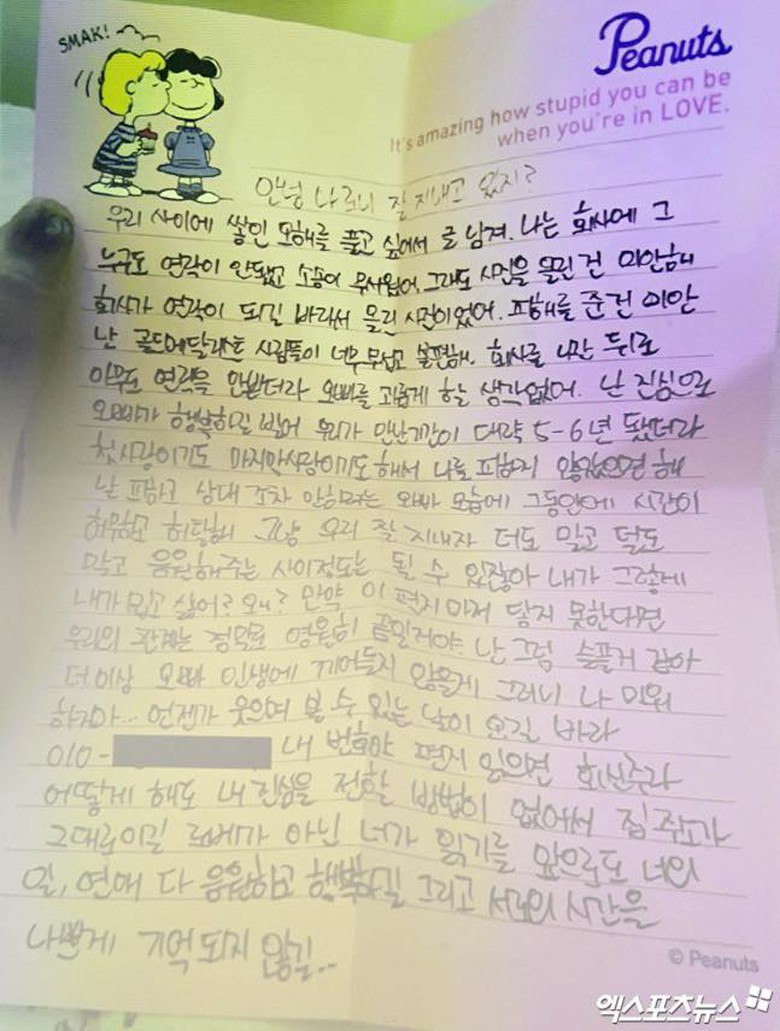 SMAK!
Peanuts
It's amazing how stupid you can be
when you're in LOVE.
안녕 나 론이 잘 지내고 있지?
우리 사이에 쌓인 오해를 풀고 싶어서 글 남겨. 나는 회사에 그
누구도 연락이 안됐고 소송이 무서웠어. 그래도 사진을 올린 건 미안해
회사가 연락이 되길 바라서 올린 사진이었어. 피해를 준건 미안
난 골드메달리스트 사람들이 너무 무섭고 불편해. 회사를 나간 뒤로
아무도 연락을 안받더라 오빠를 괴롭게 할 생각없어. 난 진심으로
오빠가 행복하길 빌어 우리가 만난기간이 대략 5-6년 됐더라
첫사랑이기도 마지막사랑이기도해서 나를 피하지 않았으면 해
날 피하고 상대 조차 안하려는 오빠 모습에 그동안에 시간이
허무하고 허탈해 그냥 우리 잘 지내자 더도 말고 덜도
말고 응원해주는 사이정도는 될 수 있잖아 내가 그렇게
내가 밉고 싫어? 왜? 만약 이 편지마저 닿지 못한다면
우리의 관계는 정말로 영원히 끝일거야 난 그럼 슬플거 같아
더이상 오빠 인생에 끼어들지 않을게 그러니 나 미워
하지마.. 언젠가 웃으며 볼 수 있는 날이 오길 바라
010- 내 번호야 편지 읽으면 회신주라
어떻게 해도 내 진심을 전할 방법이 없어서 집 주소가
그대로이길 로버가 아닌 너가 읽기를 앞으로도 너의
일, 연애 다 응원하고 행복하길 그리고 서로의 시간을
나쁘게 기억되지 않길..
© Peanuts
엑스포츠뉴스